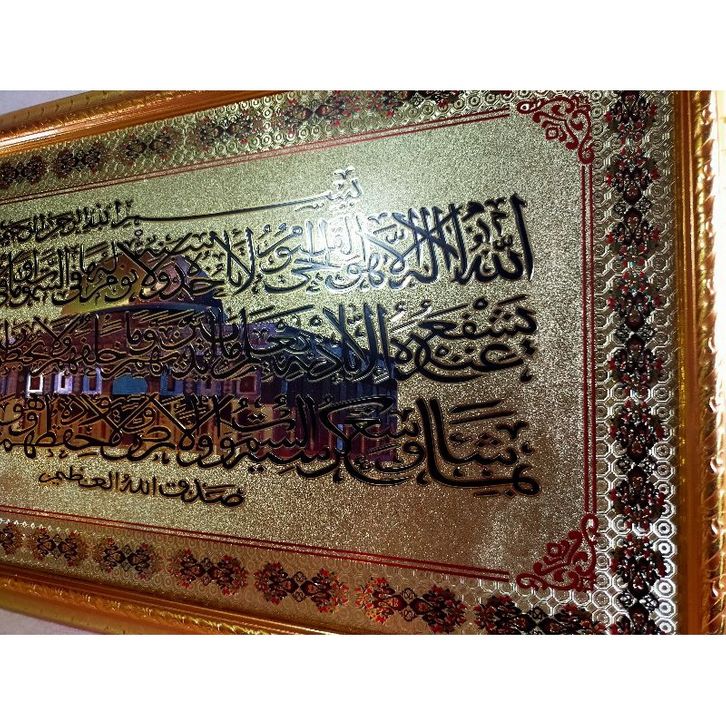 بسم الله الرحمن الرحيم
الله لا اله الا هو الحي القيوم لا تأخذه سنة ولا نوم له ما في السموات وما
يشفع عنده الا باذنه يعلم ما بين ايديهم وما خلفهم ولا يحيطون
بما شاء وسع كرسيه السموات والارض ولا يؤده حفظهما وهو
صدق الله العظيم